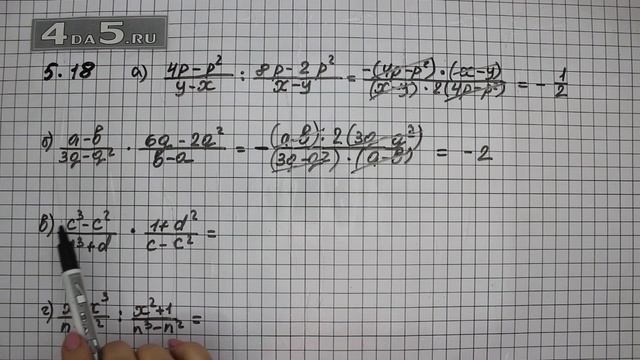 4DA5.RU
5.18 а) (4p-p²)/(y-x) : (8p-2p²)/(x-y) = (-(4p-p²)·(x-y))/((x-y)·2(4p-p²)) = -1/2
б) (a-b)/(3a-a²) · (6a-2a²)/(b-a) = -((a-b)·2(3a-a²))/((3a-a²)·(a-b)) = -2
в) (c³-c²)/(d³+d) · (1+d²)/(c-c²) =
г) x³/n² : (x²+1)/(n³-n²) =